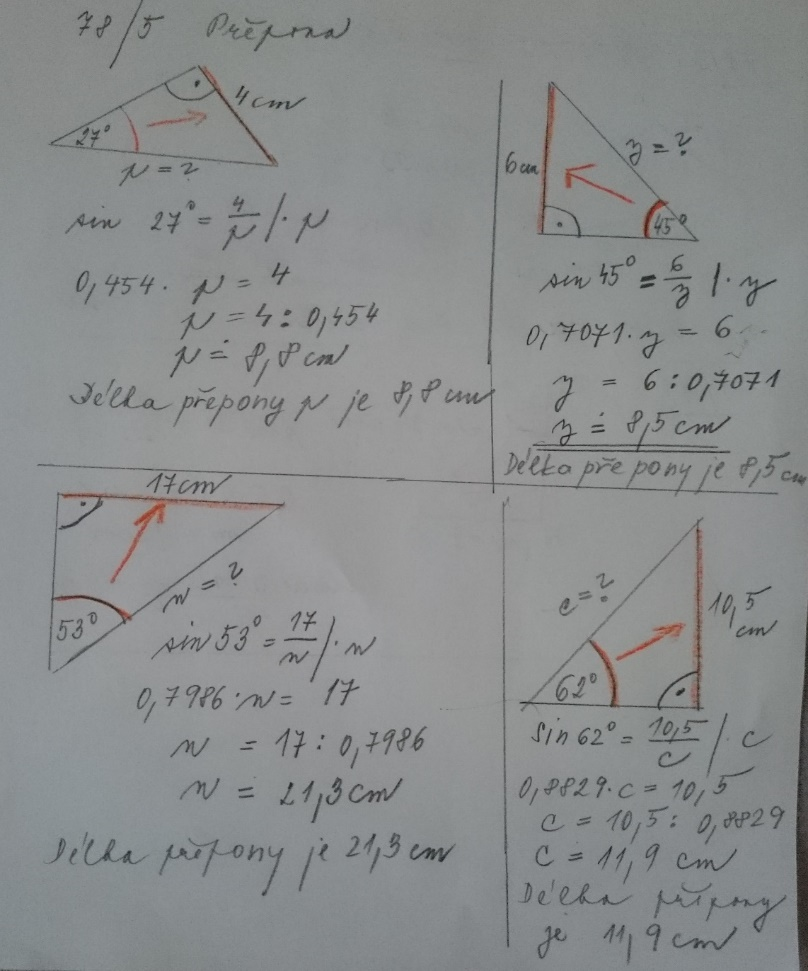 78/5 Přepona
27°
4 cm
p = ?
sin 27° = 4/p /· p
0,454 · p = 4
p = 4 : 0,454
p ≐ 8,8 cm
Délka přepony p je 8,8 cm
6 cm
y = ?
45°
sin 45° = 6/y /· y
0,7071 · y = 6
y = 6 : 0,7071
y ≐ 8,5 cm
Délka přepony je 8,5 cm
17 cm
53°
n = ?
sin 53° = 17/n /· n
0,7986 · n = 17
n = 17 : 0,7986
n = 21,3 cm
Délka přepony je 21,3 cm
c = ?
10,5
cm
62°
sin 62° = 10,5/c /· c
0,8829 · c = 10,5
c = 10,5 : 0,8829
c = 11,9 cm
Délka přepony
je 11,9 cm